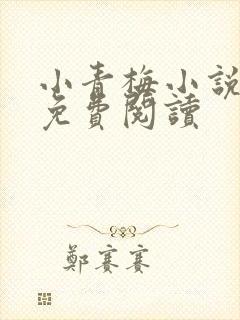 小青梅小說
免費閱讀
鄭賽賽